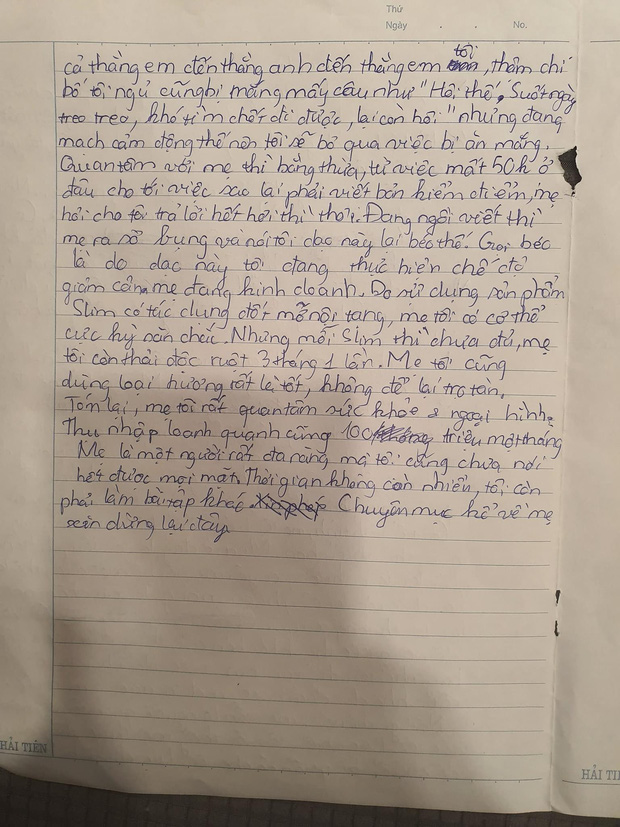 Thứ
Ngày . . No.
cả thằng em đến thằng anh đến thằng em tôi, thậm chí
bố tôi ngủ cũng bị mắng mấy câu như "Hôi thế, Suốt ngày
treo treo, khó tìm chết đi được, lại còn hôi" nhưng đang
mạch cảm động thế nên tôi sẽ bỏ qua việc bị ăn mắng.
Quan tâm với mẹ thì bằng thừa, từ việc mất 50k ở
đâu cho tới việc sao lại phải viết bản kiểm điểm, mẹ
hỏi cho tôi trả lời hết hơi thì thôi. Đang ngồi viết thì
mẹ ra sờ bụng và nói tôi dạo này lại béo thế. Gọi béo
là do dạo này tôi đang thực hiện chế độ
giảm cân mẹ đang kinh doanh. Do sử dụng sản phẩm
Slim có tác dụng đốt mỡ nội tạng, mẹ tôi có cơ thể
cực kỳ săn chắc. Nhưng mỗi Slim thì chưa đủ, mẹ
tôi còn thải độc ruột 3 tháng 1 lần. Mẹ tôi cũng
dùng loại hương rất là tốt, không để lại tro tàn.
Tóm lại, mẹ tôi rất quan tâm sức khỏe & ngoại hình.
Thu nhập loanh quanh cũng 100 triệu một tháng
Mẹ là một người rất đa năng mà tôi cũng chưa nói
hết được mọi mặt. Thời gian không còn nhiều, tôi còn
phải làm bài tập khác. Xin phép Chuyên mục kể về mẹ
xin dừng lại đây.
HẢI TIẾN
HẢI TI